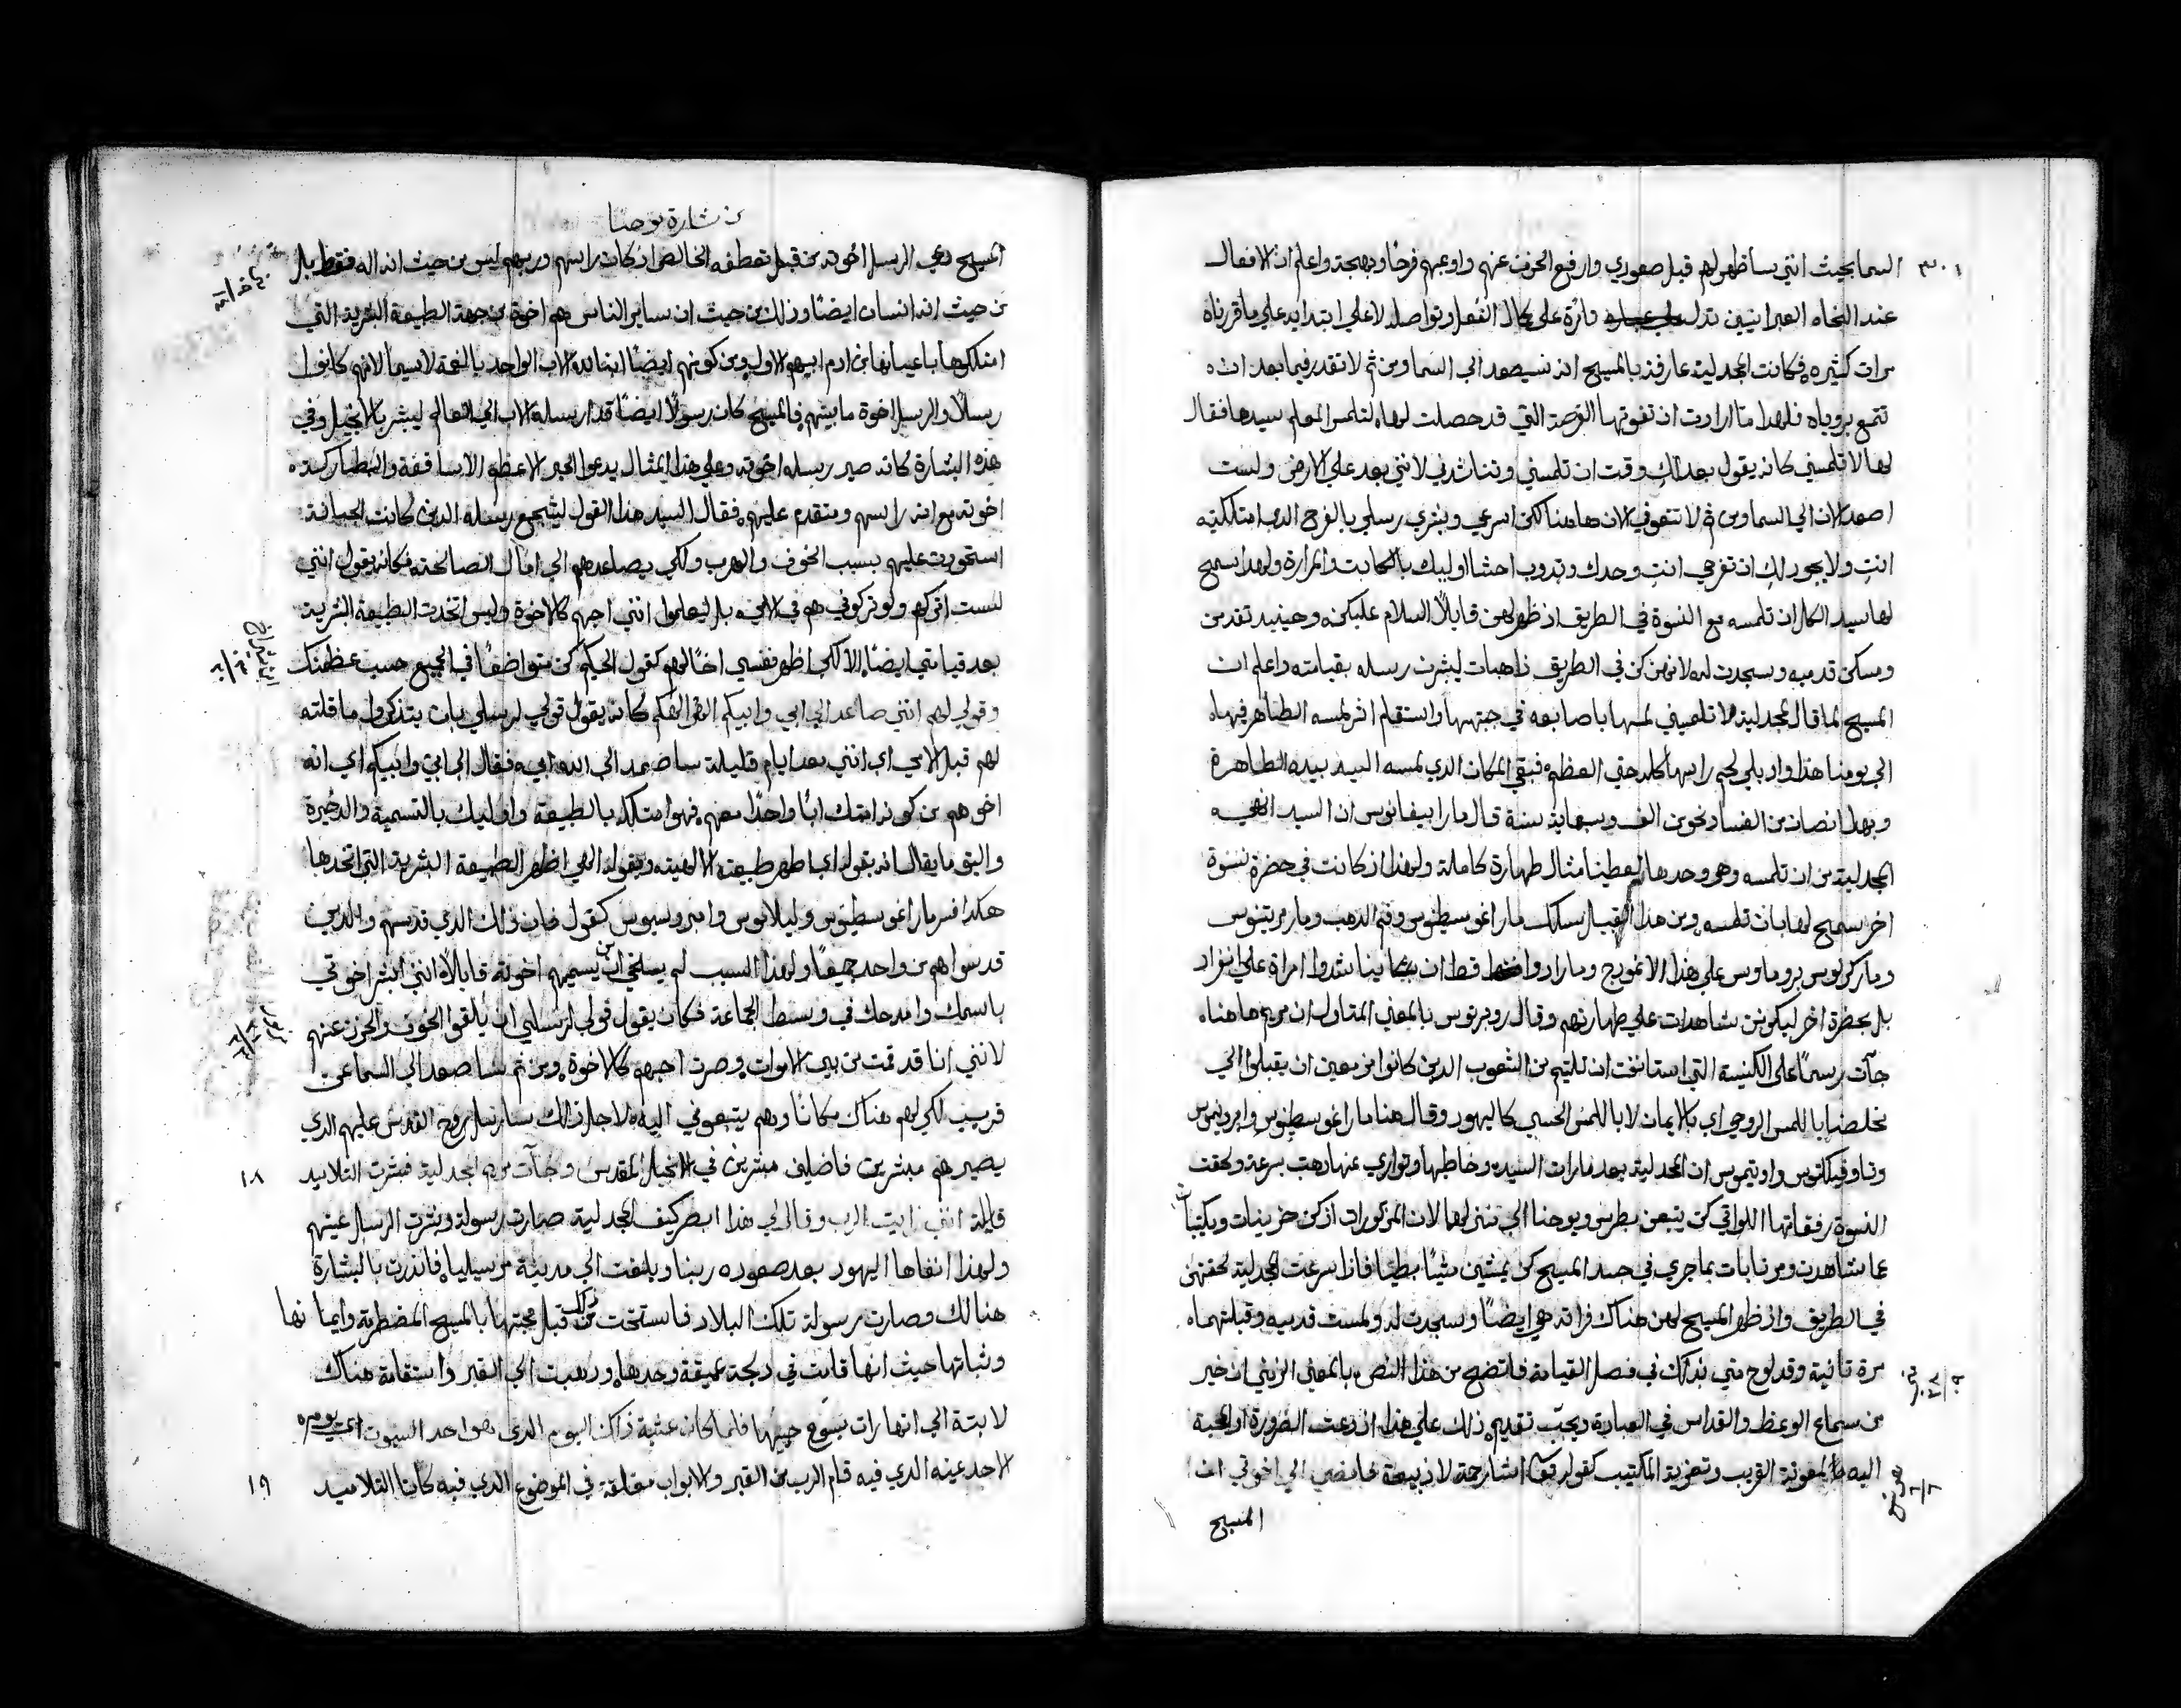 السما بحيث انني ساظهر لهم قبل صعودي وارفع الحزن عنهم واوعبهم فرحًا وبهجة واعلم ان الافعال
عند النحاه العبرانيين تدل وتارة على كمال الفعل وتواصله لا على ابتدايه على ما قررناه
مرات كثيره فكانت المجدلية عارفة بالمسيح انه سيصعد الى السما ومن ثم لا تقدر فيما بعد ان
تتمتع بروياه فلهذا ما ارادت ان تفوتها الفرصة التي قد حصلت لها لتلمس المعلم سيدها فقال
لها لا تلمسيني كانه يقول بعد لكِ وقت ان تلمسيني وتناشديني لانني بعد على الارض ولست
اصعد الان الى السما ومن ثم لا تتعوقي الان هاهنا لكن اسرعي وبشري رسلي بالفرح الذي امتلكتيه
انتِ ولا يجوز لكِ ان تفرحي انتِ وحدك وتذوب احشا اوليك بالكابة والمرارة ولهذا سمح
لها سيد الكل ان تلمسه مع النسوة في الطريق اذ ظهر لهن قايلًا السلام عليكن وحينيد تقدمن
ومسكن قدميه وسجدت له لانهن كن في الطريق ذاهبات ليبشرن رسله بقيامته واعلم ان
المسيح لما قال للمجدلية لا تلمسيني لمسها باصابعه في جبهتها واستقام اثر لمسه الطاهر فيها
الى يومنا هذا واذ بلي لحم راسها كله حتى العظم فبقي المكان الذي لمسه السيد بيده الطاهرة
وبهذا نصان من الفساد نحو من الف وسبعماية سنة قال مار ابيفانوس ان السيد انهى
المجدلية من ان تلمسه وهي وحدها ليعطينا مثال طهارة كاملة ولهذا اذ كانت في حضرة نسوة
اخر سمح لها بان تلمسه ومن هذا القبيل سلك مار اغوسطينوس وفم الذهب ومار مرتينوس
ومار كرلوس بروماوس على هذا الانموذج وما ارادوا قط ان يناشدوا امراة على انفراد
بل بحضرة اخر ليكونن شاهدات على طهارتهم وقال روبرتوس بالمعنى المتاول ان مريم هاهنا
جآت رسمًا على الكنيسة التي استانفت ان تلتيم من الشعوب الدين كانوا مزمعين ان يقبلوا الى
مخلصنا باللمس الروحي اي بالايمان لا باللمس الحسي كاليهود وقال هنا مار اغوسطينوس وامبروسيوس
وتاوفيلكتوس واوتيموس ان المجدلية بعدما رات السيد وخاطبها وتوارى عنها ذهبت بسرعة ولحقت
النسوة رفقاتها اللواتي كن يتبعن بطرس ويوحنا الى منزلهما لان المذكورات اذ كن حزينات ومكتيبات
عما شاهدن ومرتابات بما جرى في جسد المسيح كن يمشين مشيًا بطيًا فاذا اسرعت المجدلية لحقتهن
في الطريق واذ ظهر المسيح لهن هناك فراته هي ايضًا وسجدت له ولمست قدميه وقبلتهما
مرة تانية وقد لوح متي بذلك في فصل القيامة فاتضح من هذا النص بالمعنى الرمزي ان خير
من سماع الوعظ والقداس في العبادة ويجب تقديم ذلك على هذا ان دعت الضرورة او المحبة
اليه معونة القريب وتعزية المكتيب كقوله اشا رحمة لا ذبيحة فامضي الى اخوتي ان
المسيح
من بشارة يوحنا
المسيح دعى الرسل اخوته من قبل تعطفه الخالص اذ كان راسهم وربهم ليس من حيث انه اله فقط بل
من حيث انه انسان ايضًا وذلك من حيث ان ساير الناس هم اخوة من جهة الطبيعة البشرية التي
امتلكوها باعيانها من ادم ابيهم الاول ومن كونهم ايضًا ابنا لله الاب الواحد بالنعمة لاسيما لانهم كانوا
رسلًا والرسل اخوة ما بينهم فالمسيح كان رسولًا ايضًا قد ارسله الاب الى العالم ليبشر بالانجيل وفي
هذه البشارة كانه صير رسله اخوته وعلى هذا المثال يدعوا الحبر الاعظم الاساقفة والبطاركة
اخوته مع انه راسهم ومتقدم عليهم فقال السيد هذا القول ليشجع رسله الدين كانت الجبانة
استحوذت عليهم بسبب الخوف والهرب ولكي يصاعدهم الى امال الصالحة فكانه يقول انني
لست اتركهم ولو تركوني هم في الامي بل ليعلموا انني احبهم كالاخوة وليس اتخدت الطبيعة البشرية
بعد قيامتي ايضًا الا لكي اظهر نفسي اخًا لهم كقول الحكيم كن متواضعًا في الجميع حسب عظمتك
وقولي لهم انني صاعد الى ابي وابيكم الهي والهكم كانه يقول قولي لرسلي بان يتذكروا ما قلته
لهم قبل الامي اي انني بعد ايام قليلة ساصعد الى الله ابي فقال الى ابي وابيكم اي انه
اخوهم من كونه امتلك ابًا واحدًا معهم فهو امتلكه بالطبيعة واوليك بالتسمية والدخيرة
واليق ما يقال انه بقوله ابي اظهر طبيعته الالهية وبقوله الهي اظهر الطبيعة البشرية التي اتخدها
هكذا فسر مار اغوسطينوس وايلاريوس وامبروسيوس كقول فان ذلك الذي قدسهم والذين
قدسوا هم من واحد جميعًا ولهذا السبب لم يستحي من ان يسميهم اخوته قايلًا انني ابشر اخوتي
باسمك وامدحك في وسط الجماعة فكان يقول قولي لرسلي ان يلقوا الخوف والحزن عنهم
لانني انا قد قمت من بين الاموات وصرت احبهم كالاخوة ومن ثم ساصعد الى السما عن
قريب لكي لهم هناك مكانًا وهم يتبعوني اليه لاجل ذلك سارسل روح القدس عليهم الذي
يصيرهم مبشرين فاضلين مبشرين في الانجيل المقدس وجآت مريم المجدلية فبشرت التلاميد ١٨
قايلة انني رايت الرب وقال لي هذا ابصر كيف المجدلية صارت رسولة وبشرت الرسل عينهم
ولهذا انفاها اليهود بعد صعوده ربنا وبلغت الى مدينة مرسيليا فانذرت بالبشارة
هنالك وصارت رسولة تلك البلاد فاستحقت ذلك من قبل محبتها بالمسيح المضطرمة وايمانها
وثباتها حيث انها قامت في دلجة عميقة وحدها وذهبت الى القبر واستقامة هناك
لابتة الى انها رات يسوع حبيبها فلما كان عشية ذاك اليوم الذي هو احد السبوت اي يوم
الاحد عينه الذي فيه قام الرب من القبر والابواب مغلقة في الموضع الذي فيه كانا التلاميد ١٩